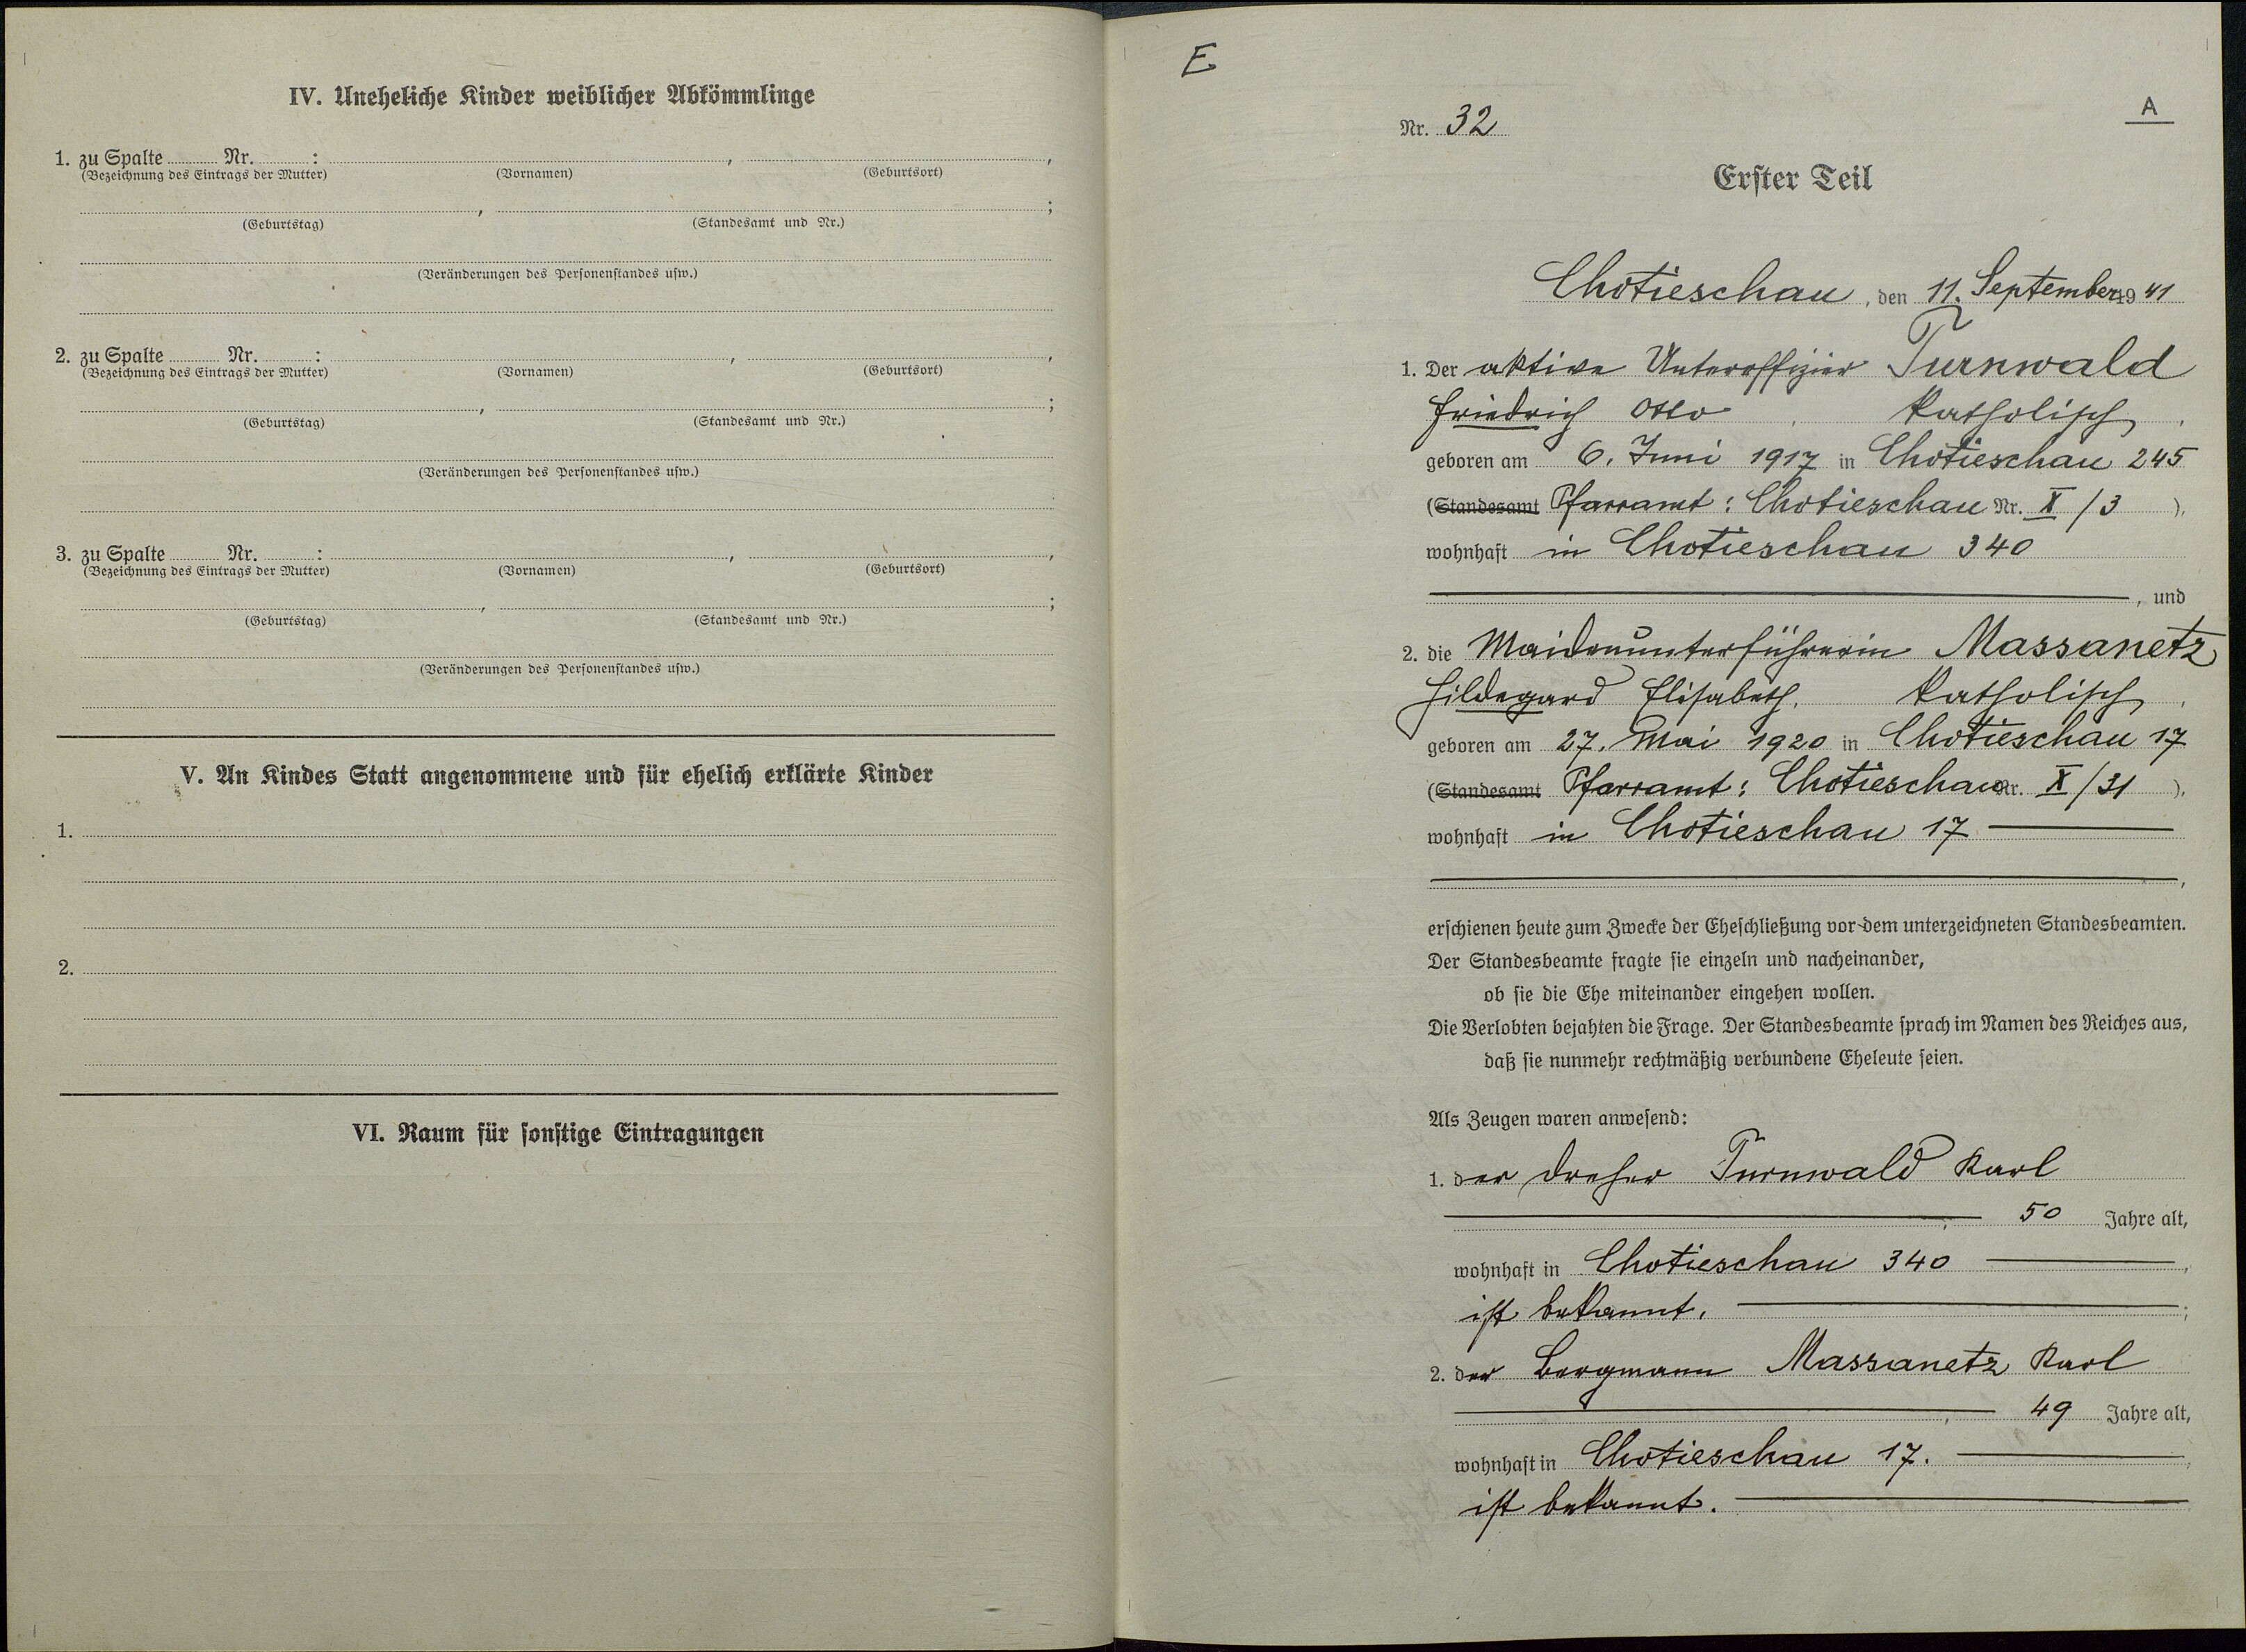 IV. Uneheliche Kinder weiblicher Abkömmlinge
1. zu Spalte Nr. : , ,
(Bezeichnung des Eintrags der Mutter) (Vornamen) (Geburtsort)
, ;
(Geburtstag) (Standesamt und Nr.)
(Veränderungen des Personenstandes usw.)
2. zu Spalte Nr. : , ,
(Bezeichnung des Eintrags der Mutter) (Vornamen) (Geburtsort)
, ;
(Geburtstag) (Standesamt und Nr.)
(Veränderungen des Personenstandes usw.)
3. zu Spalte Nr. : , ,
(Bezeichnung des Eintrags der Mutter) (Vornamen) (Geburtsort)
, ;
(Geburtstag) (Standesamt und Nr.)
(Veränderungen des Personenstandes usw.)
V. An Kindes Statt angenommene und für ehelich erklärte Kinder
1.
2.
VI. Raum für sonstige Eintragungen
E
A
Nr. 32
Erster Teil
Chotieschau, den 11. September 1941
1. Der aktive Unteroffizier Turnwald
Friedrich Otto, katholisch,
geboren am 6. Juni 1917 in Chotieschau 245
(Standesamt Pfarramt: Chotieschau Nr. X/3),
wohnhaft in Chotieschau 340
, und
2. die Maidenunterführerin Massanetz
Hildegard Elisabeth, katholisch,
geboren am 27. Mai 1920 in Chotieschau 17
(Standesamt Pfarramt: Chotieschau Nr. X/31),
wohnhaft in Chotieschau 17
,
erschienen heute zum Zwecke der Eheschließung vor dem unterzeichneten Standesbeamten.
Der Standesbeamte fragte sie einzeln und nacheinander,
ob sie die Ehe miteinander eingehen wollen.
Die Verlobten bejahten die Frage. Der Standesbeamte sprach im Namen des Reiches aus,
daß sie nunmehr rechtmäßig verbundene Eheleute seien.
Als Zeugen waren anwesend:
1. der Dreher Turnwald Karl
, 50 Jahre alt,
wohnhaft in Chotieschau 340,
ist bekannt. ;
2. der Bergmann Massanetz Karl
, 49 Jahre alt,
wohnhaft in Chotieschau 17. ,
ist bekannt.